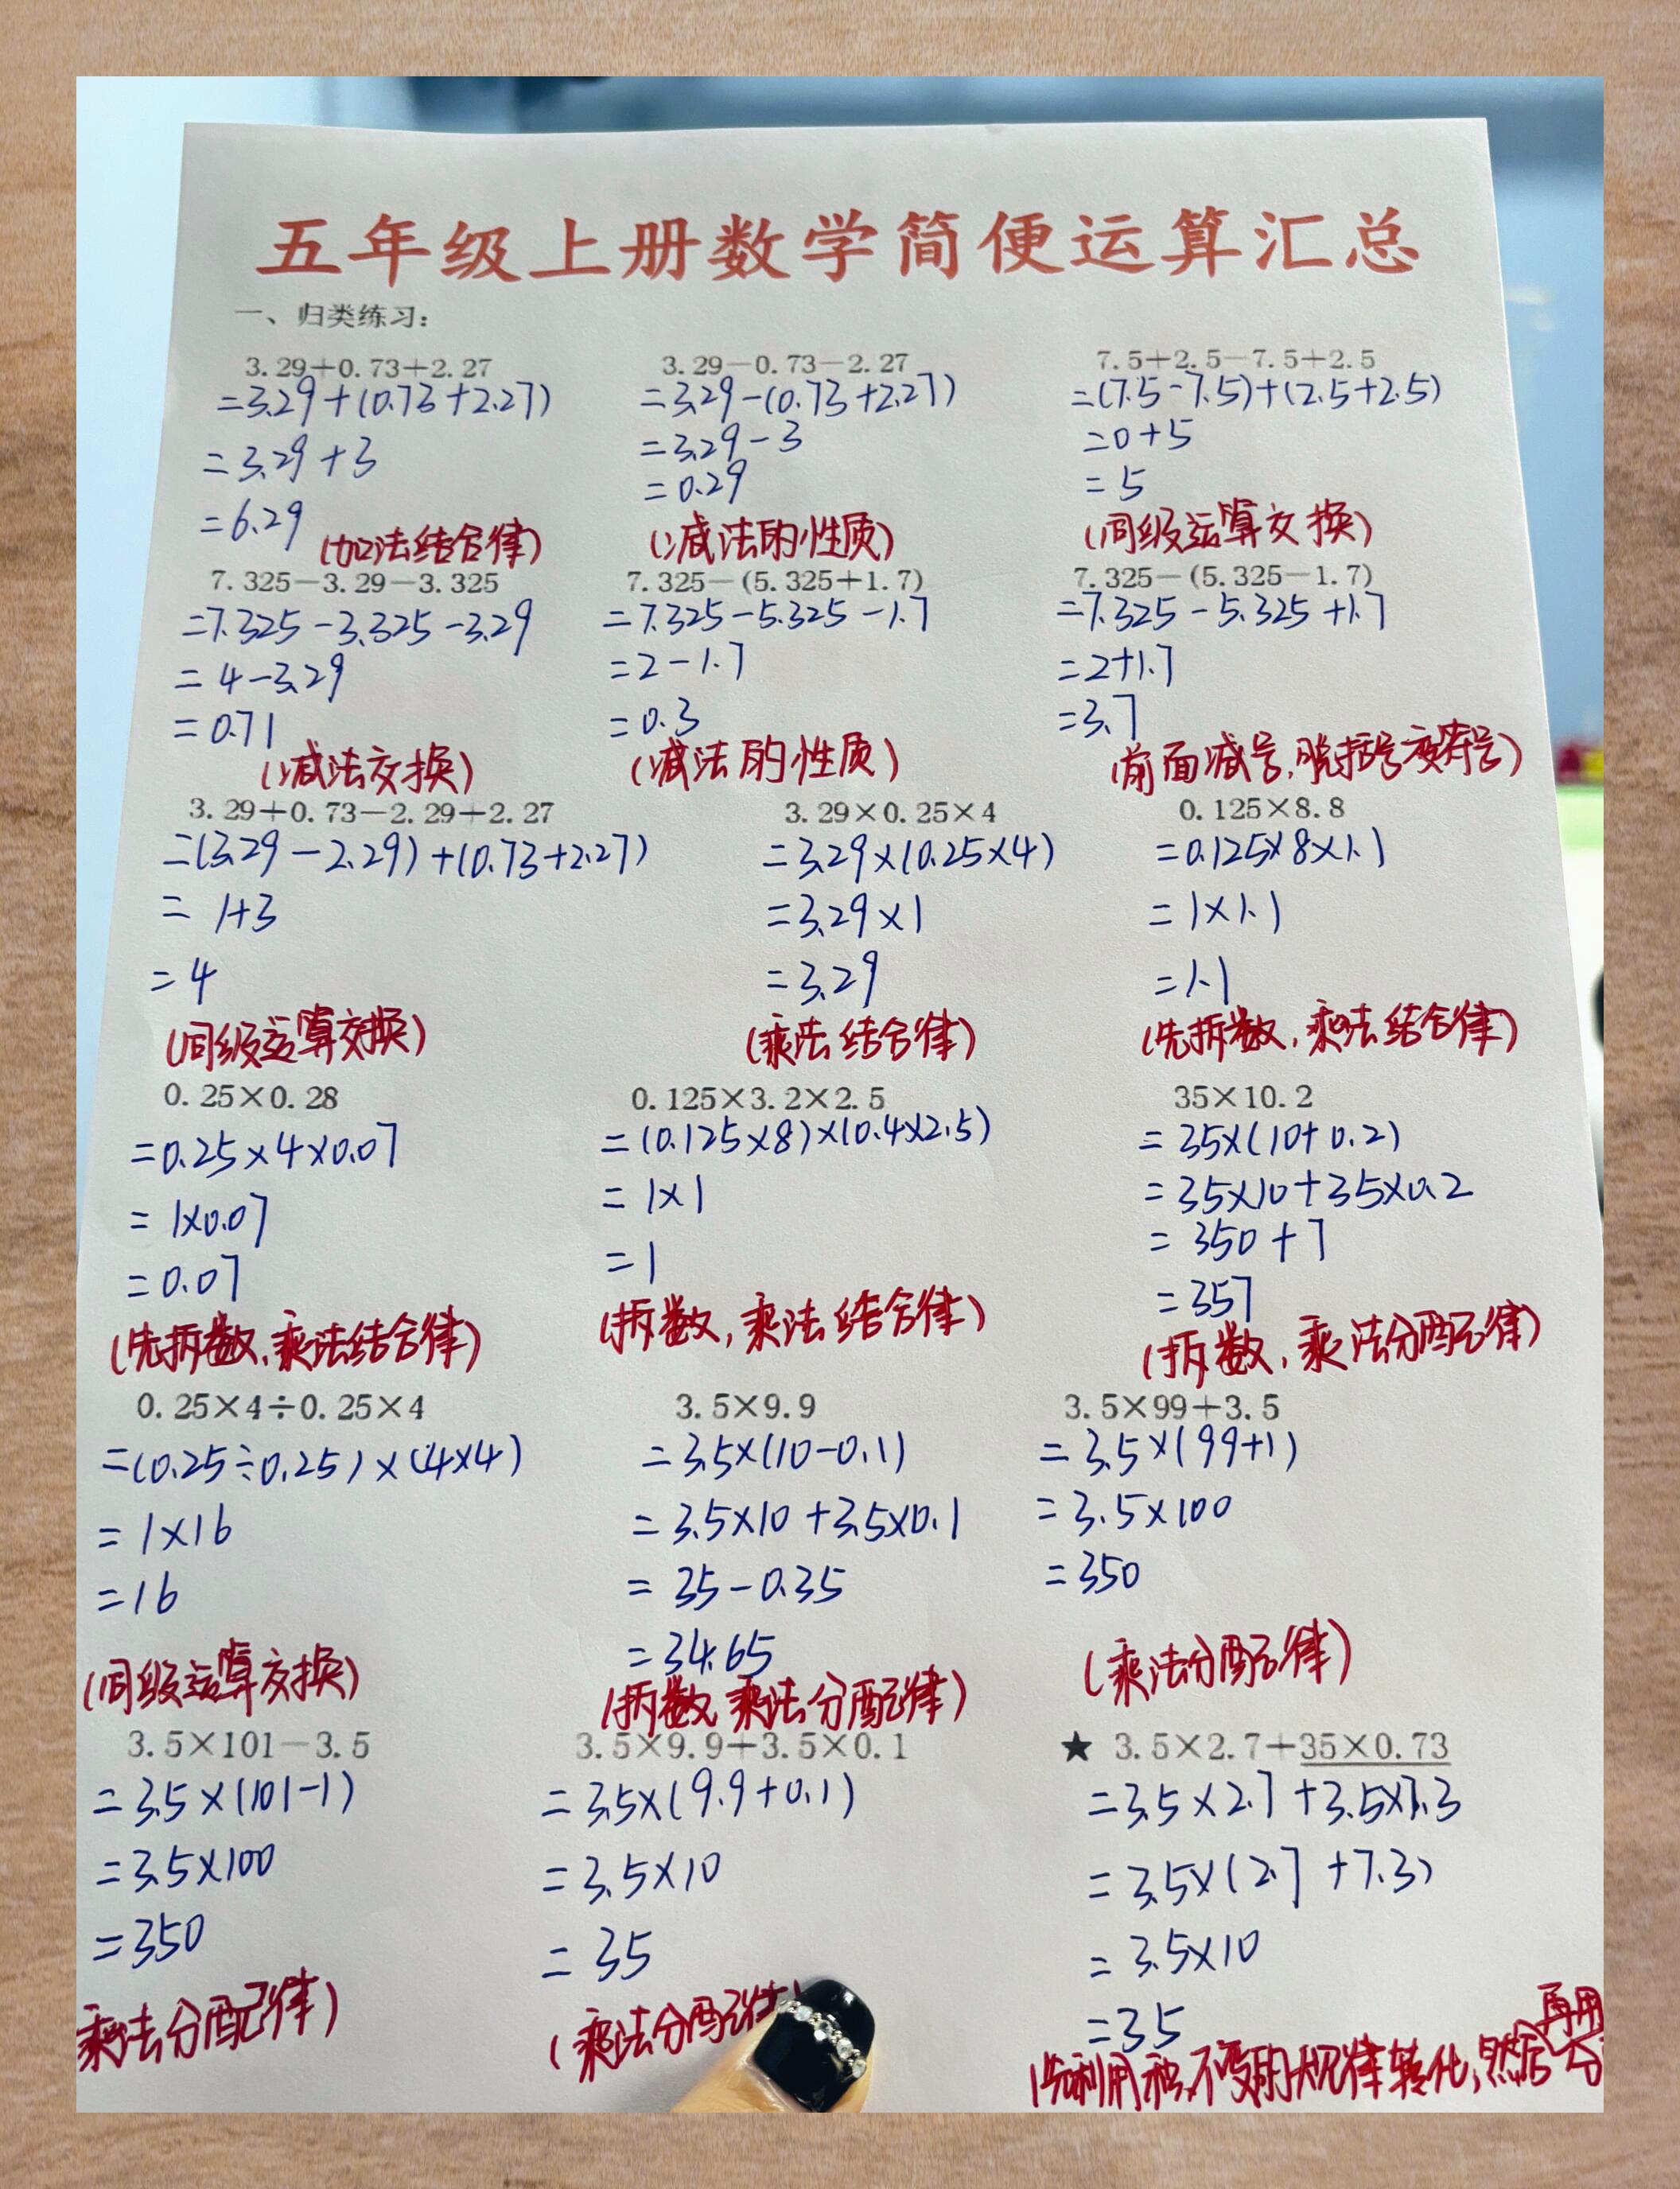 五年级上册数学简便运算汇总
一、归类练习:
3.29+0.73+2.27
=3.29+(0.73+2.27)
=3.29+3
=6.29
(加法结合律)
3.29-0.73-2.27
=3.29-(0.73+2.27)
=3.29-3
=0.29
(减法的性质)
7.5+2.5-7.5+2.5
=(7.5-7.5)+(2.5+2.5)
=0+5
=5
(同级运算交换)
7.325-3.29-3.325
=7.325-3.325-3.29
=4-3.29
=0.71
(减法交换)
7.325-(5.325+1.7)
=7.325-5.325-1.7
=2-1.7
=0.3
(减法的性质)
7.325-(5.325-1.7)
=7.325-5.325+1.7
=2+1.7
=3.7
(前面减号,脱括号变符号)
3.29+0.73-2.29+2.27
=(3.29-2.29)+(0.73+2.27)
=1+3
=4
(同级运算交换)
3.29×0.25×4
=3.29×(0.25×4)
=3.29×1
=3.29
(乘法结合律)
0.125×8.8
=0.125×8×1.1
=1×1.1
=1.1
(先拆数,乘法结合律)
0.25×0.28
=0.25×4×0.07
=1×0.07
=0.07
(先拆数,乘法结合律)
0.125×3.2×2.5
=(0.125×8)×(0.4×2.5)
=1×1
=1
(拆数,乘法结合律)
35×10.2
=35×(10+0.2)
=35×10+35×0.2
=350+7
=357
(拆数,乘法分配律)
0.25×4÷0.25×4
=(0.25÷0.25)×(4×4)
=1×16
=16
(同级运算交换)
3.5×9.9
=3.5×(10-0.1)
=3.5×10+3.5×0.1
=35-0.35
=34.65
(拆数 乘法分配律)
3.5×99+3.5
=3.5×(99+1)
=3.5×100
=350
(乘法分配律)
3.5×101-3.5
=3.5×(101-1)
=3.5×100
=350
乘法分配律)
3.5×9.9+3.5×0.1
=3.5×(9.9+0.1)
=3.5×10
=35
(乘法分配律
★ 3.5×2.7+35×0.73
=3.5×2.7+3.5×7.3
=3.5×(2.7+7.3)
=3.5×10
=35
利用积不变的规律转化,然后再用